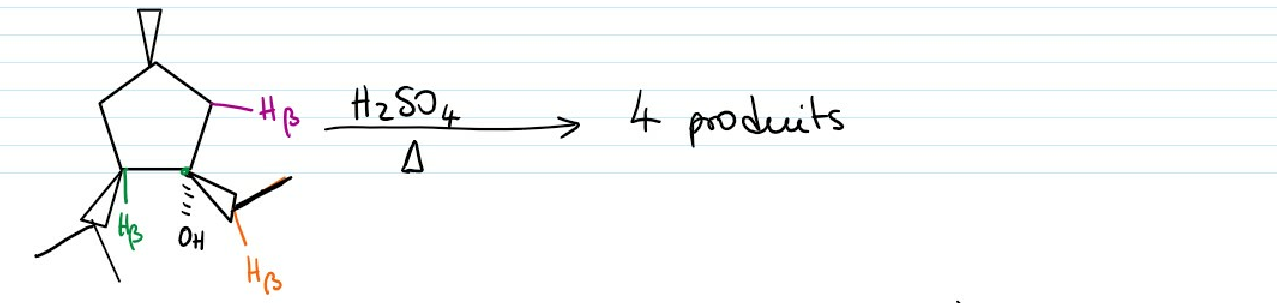 Hβ
H₂SO₄
Δ
4 produits
Hβ
OH
Hβ